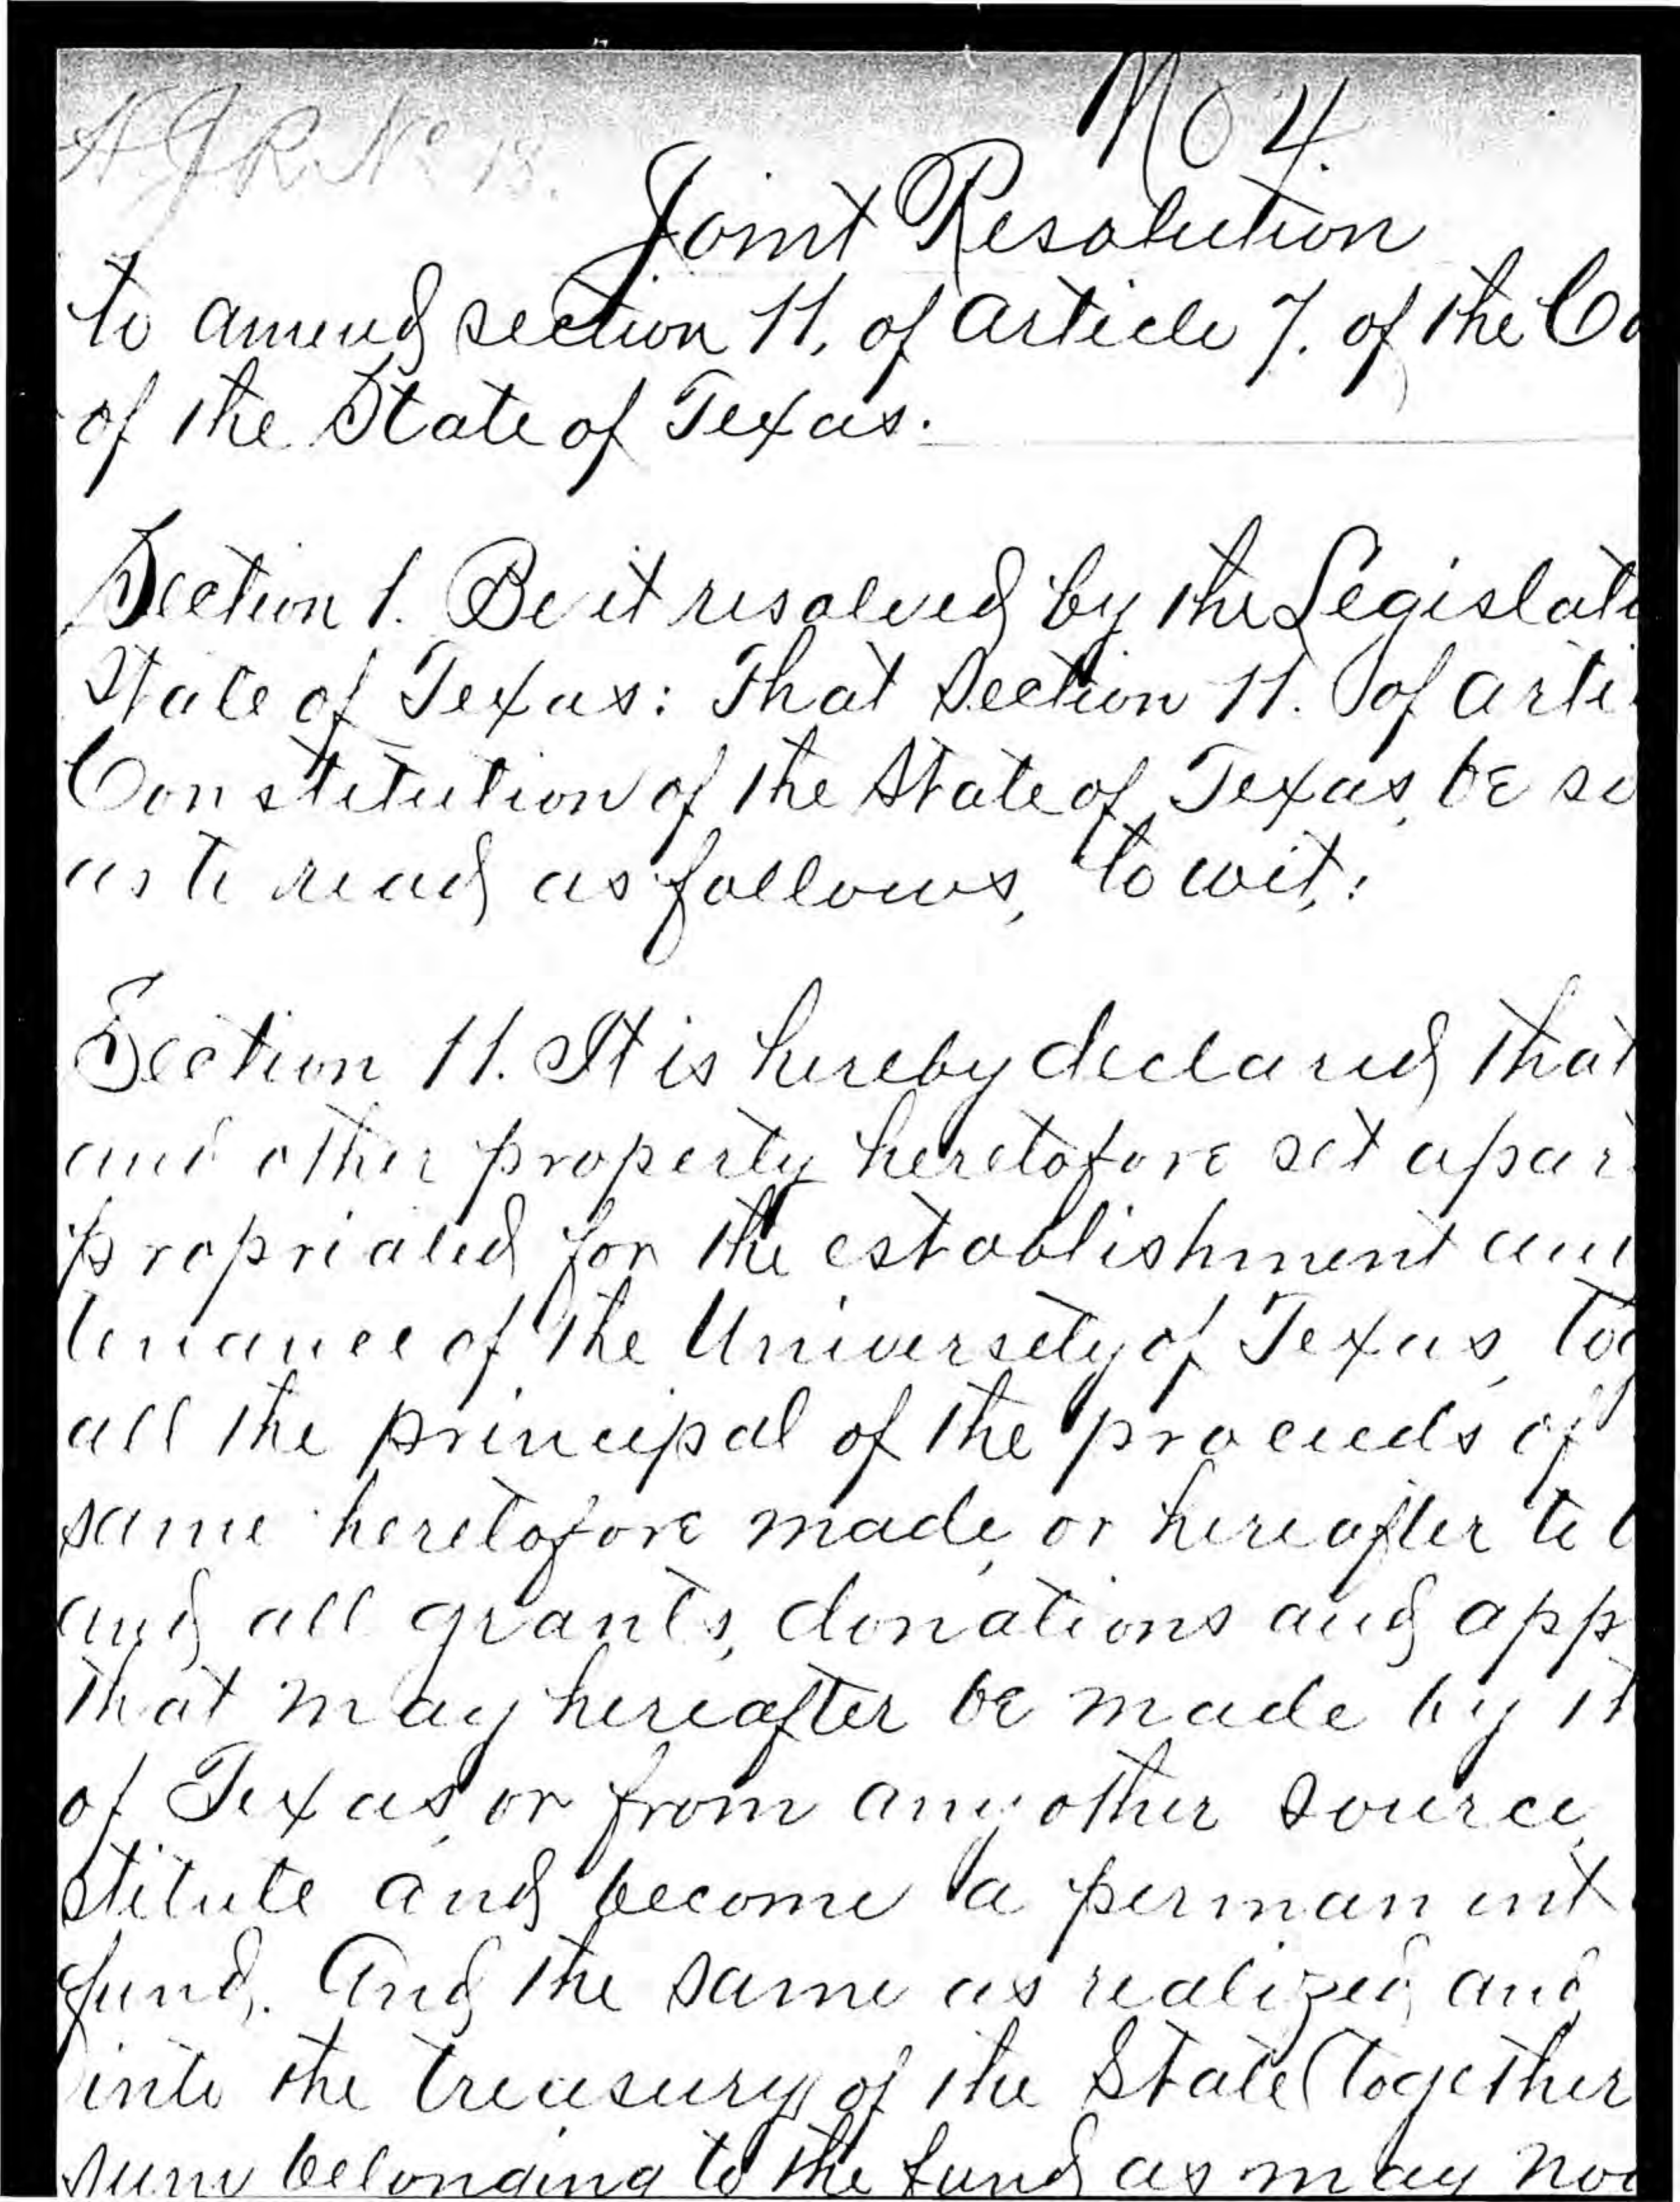 No 4.
H J R No 18.
Joint Resolution
to amend section 11, of article 7. of the Co
of the State of Texas.
Section 1. Be it resolved by the Legislatu
State of Texas: That Section 11. of arti
Constitution of the State of Texas, be so
as to read as follows, to wit,:
Section 11. It is hereby declared that
and other property heretofore set apar
propriated for the establishment an
tenance of the University of Texas, tog
all the principal of the proceeds of
same heretofore made, or hereafter to b
and all grants, donations and app
that may hereafter be made by th
of Texas, or from any other source,
stitute and become a permanent
fund. And the same as realized and
into the treasury of the State (together
sum belonging to the fund as may now